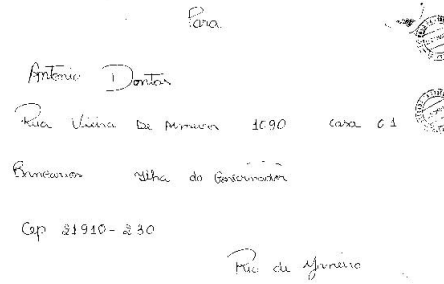 Para
Antonio Dantas
Rua Vieira De 1090 casa 01
Bancarios Ilha do Governador
Cep 21910-230
Rio de Janeiro